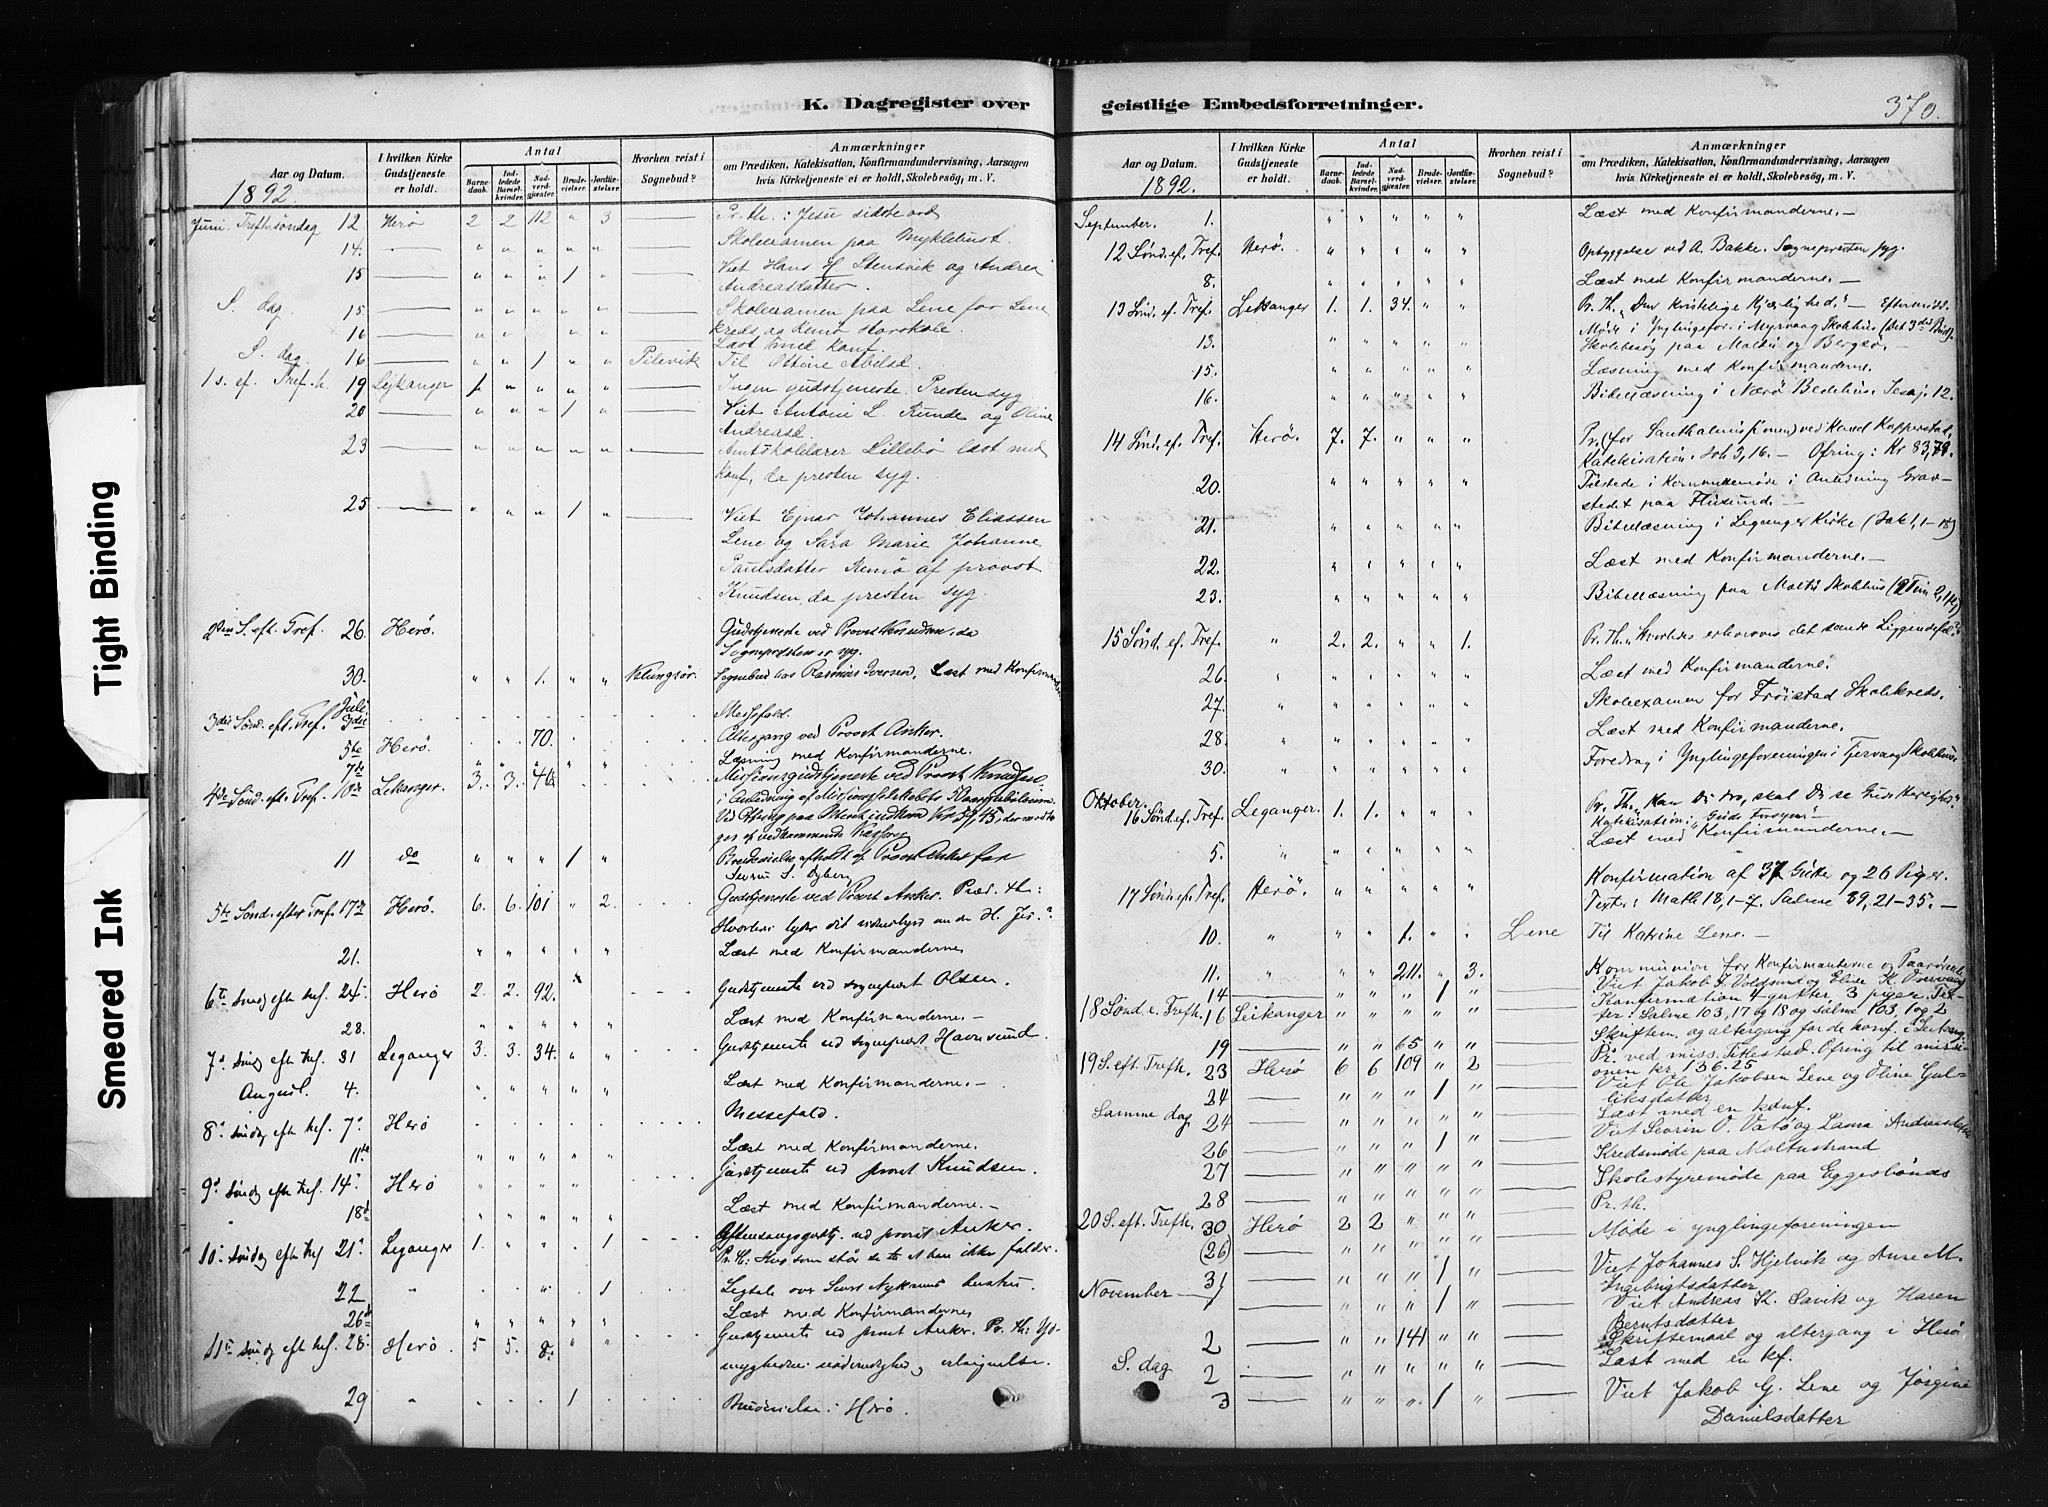 K. Dagregister over geistlige Embedsforretninger.
370.
Aar og Datum.
1892.
I hvilken Kirke Gudstjeneste er holdt.
Antal
Barnedaab.
Indledede Barselkvinder.
Nadverdgjæster.
Brudevielser.
Jordfæstelser.
Hvorhen reist i Sognebud?
Anmærkninger
om Prædiken, Katekisation, Konfirmandundervisning, Aarsagen
hvis Kirketjeneste ei er holdt, Skolebesøg, m. V.
Juni. Trefh.søndag 12. Herø 2 2 112 " 3 Pr. th.: Jesu sidste ord
14. " " " " " Skoleexamen paa Myklebust.
15 " " " 1 " Viet Hans H. Stensvik og Andrea
Andreasdatter.
S. dag. 15. " " " " " Skoleexamen paa Lene for Lene
kreds og Remø storskole.
16 " " " " Læst med konf.
S. dag. 16 " " 1 " " Pilevik Til Ottine Abilsd.
1 s. ef. Tref.h. 19 Leikanger 1 " " " " Ingen gudstjeneste. Presten syg
20 " " " 1 " Viet Antoni L. Runde og Oline
Andreasd.
23 " " " " " Amtskolelærer Lillebø læst med
konf, da presten syg.
25 " " " 1 " Viet Ejnar Johannes Eliassen
Lene og Sara Marie Johanne
Paulsdatter Remø af provst
Knudsen, da presten syg.
2den S. eft. Tref. 26. Herø. Gudstjeneste ved Provst Knudsen, da
Sognepresten er syg.
30. " " 1. " " Klungsør. Sognebud hos Rasmus Iversen. Læst med Konfirmanderne
Juli.
3die Sønd. eft. Tref. 3die Messefald.
5te Herø. 70. Altergang ved Provst Anker.
7de " " " " " Læsning med Konfirmanderne.
4de Sønd. eft. Tref. 10de Lekanger. 3. 3. 46. Missionsgudstjeneste ved Provst Knudsen
i Anledning af Missionsselskabets
11 do " " " 1 " Brudevielse afholdt af Provst Anker for
5te Sønd. efter Tref. 17de Herø. 6. 6. 101 " 2. Gudstjeneste ved Provst Anker. Præd. th:
Hvorledes lyder dit vidnesbyrd om den H. Jes.?
21. " " " " " Læst med Konfirmanderne
6te Søndag efter tref. 24. Herø 2. 2. 92. " Gudstjeneste ved sogneprest Olsen.
28. " " " " " Læst med Konfirmanderne. -
7de Søndag efter tref. 31 Leganger 3. 3. 34. " " Gudstjeneste ved sogneprest Havnsund.
August. 4. " " " " " Læst med Konfirmanderne. -
8de Søndag efter tref. 7de Herø Messefald.
11te " " " " " Læst med Konfirmanderne.
9de Søndag efter tref. 14de Herø " " " " " Gudstjeneste ved provst Knudsen.
18de " " " " " Læst med Konfirmanderne. -
10de Søndag efter tref. 21de Leganger 1. " " " 1 Aftensangsgudstj. ved provst Anker.
Pr. th: Hver som står se til at han ikke falder.
22 " " 1
26de " " " " " Læst med Konfirmanderne
11te Søndag efter tref. 28. Herø. 5 5. 8. " " Gudstjeneste ved provst Anker. Pr. th: Yd-
myghedens nødvendighed og velsignelse.
29 " " 1 Brudevielse i Herø.
Aar og Datum.
1892.
I hvilken Kirke Gudstjeneste er holdt.
Antal
Barnedaab.
Indledede Barselkvinder.
Nadverdgjæster.
Brudevielser.
Jordfæstelser.
Hvorhen reist i Sognebud?
Anmærkninger
om Prædiken, Katekisation, Konfirmandundervisning, Aarsagen
hvis Kirketjeneste ei er holdt, Skolebesøg, m. V.
September. 1. " " " " " Læst med Konfirmanderne. -
12 Sønd. ef. Tref. Herø. " " " " " Opbyggelse ved A. Bakke. Sognepresten syg.
8. " " " " " Læst med Konfirmanderne. -
13 Sønd. ef. Tref. Leikanger 1. 1. 34. " " Pr. Th. "Den kristelige Kjærlighed." - Eftermidd.
Møde i Ynglingefor. i Myrvaag Skolhus (det 3die Bud).
13. " " " " " Skolebesøg paa Moltu og Bergsø. -
15. " " " " " Læsning med Konfirmanderne.
16. " " " " " Bibellæsning i Nærø Bedehus. Jesaj. 12.
14 Sønd. ef. Tref. Herø. 7. 7. " " " Pr. (for Santhalmissionen) ved Knud Kopperstad,
Katekisation. Joh 3,16. - Ofring: Kr 83,79.
20. " " " " " Tilstede i Kommunemøde i Anledning Grav-
stedet paa Flusund. -
21. " " " " " Bibellæsning i Leganger Kirke (Jak 1, 1-18)
22. " " " " " Læst med Konfirmanderne. -
23. " " " " " Bibellæsning paa Moltu Skolhus (2 Tim 2, 1-14)
15 Sønd. ef. Tref. " 2. 2. " " 1. Pr. Th. "Hvorledes erhverves det sande Liggendefæ?"
26. " " " " " " Læst med Konfirmanderne.
27. " " " " " " Skoleexamen for Frøistad Skolekreds.
28. " " " " " " Læst med Konfirmanderne.
30. " " " " " " Foredrag i Ynglingeforeningen i Tjervaag Skolhus.
Oktober.
16 Sønd. ef. Tref. Leganger. 1. 1. " " " Pr. Th. "Kan Du tro, skal Du se Guds Herlighed."
Katekisation: "Guds Forsyn." -
5. " " " " " " Læst med Konfirmanderne. -
17 Sønd. ef. Tref. Herø. " " " " " Konfirmation af 37 Gutter og 26 Piger.
Texter: Math 18, 1-7. Salme 89, 21-35. -
10. " " " 1. " " Lene Til Katrine Lene. -
11. " " " 211. " 3. Kommunion for Konfirmanterne og Paarørende
14 " " " 1 " Viet Jakob J. Voldsund og Elise K. Dragevaag
18 Sønd. e. Trefh. 16 Leikanger " " " " " Konfirmation 4 gutter 3 piger. Tex-
ter: Salme 103, 17 og 18 og salme 103, 1 og 2
19 " " 65 " " Skriftem. og altergang for de konf. i Leikang.
19 S. eft. Trefh. 23 Herø 6 6 109 " 2 Pr. ved miss. Tittestad. Ofring til missi-
onen kr. 136.25
24 " " " 1 " Viet Ole Jakobsen Lene og Oline Gul-
liksdatter
Samme dag 24 " " " " " Læst med en konf.
26 " " " 1 " Viet Sevrin O. Vatø og Lama Andreasdatter
27 " " " " " Kredsmøde paa Moltustrand
28 " " " " " Skolestyremøde paa Eggesbønæs
20 S. eft. Trefh. 30 Herø 2 2 " " " Pr. th.
(26) " " " " " Møde i ynglingeforeningen
31 " " " 1 " Viet Johannes S. Hjelvik og Anne M.
Ingebrigtsdatter
November 1 " " " 1 " Viet Andreas K. Savik og Karen
Berntsdatter
2 " " 141 " " Skriftemaal og altergang i Herø
S. dag 2 " " " " " Læst med en kf.
3 " " " 1 " Viet Jakob G. Lene og Jørgine
Danielsdatter
Tight Binding
Smeared Ink